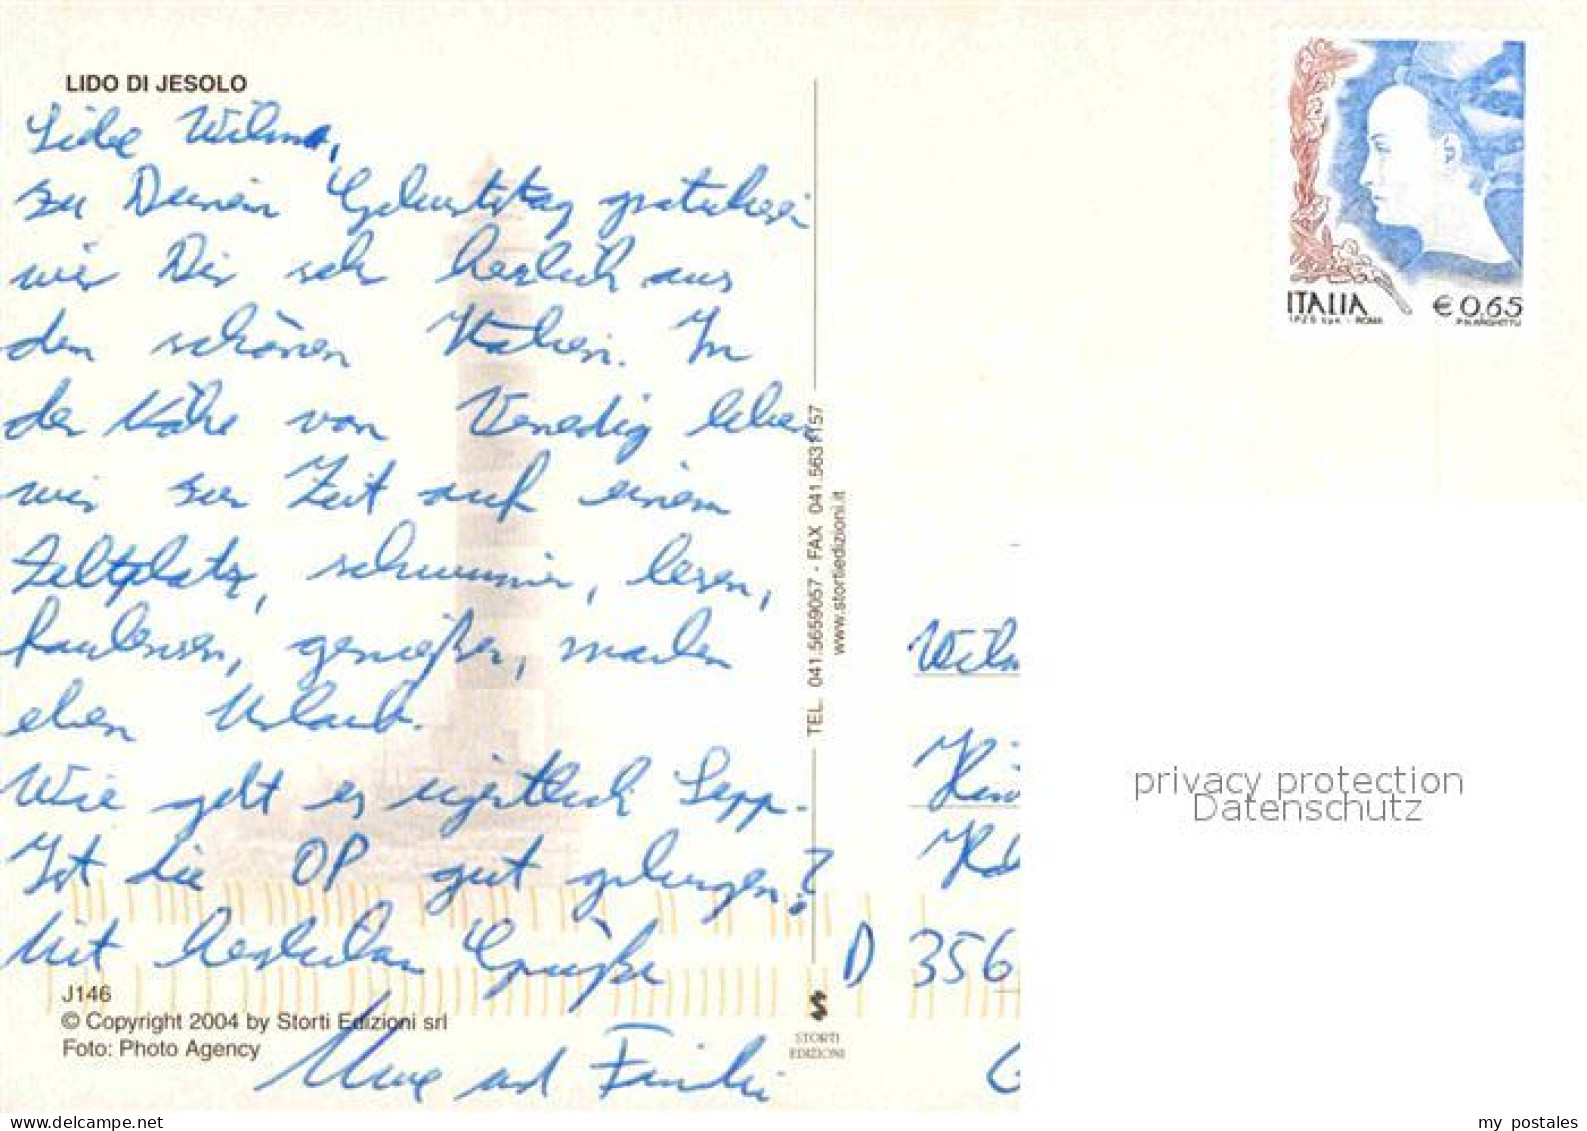 LIDO DI JESOLO
Liebe Wilma,
zu Deinem Geburtstag gratulieren
wir Dir sehr herzlich aus
dem schönen Italien. In
der Nähe von Venedig leben
wir zur Zeit auf einem
Zeltplatz, schwimmen, lesen,
faulenzen, genießen, machen
eben Urlaub.
Wie geht es eigentlich Sepp.
Ist die OP gut gelungen?
Mit herzlichen Grüßen
und Familie
J146
© Copyright 2004 by Storti Edizioni srl
Foto: Photo Agency
TEL. 041.5659057 - FAX 041.5631157
www.stortiedizioni.it
STORTI
EDIZIONI
ITALIA
€ 0,65
I.P.Z.S. S.p.A. - ROMA
P.N.ARGHITTU
Wilm
D 356
privacy protection
Datenschutz
my postales